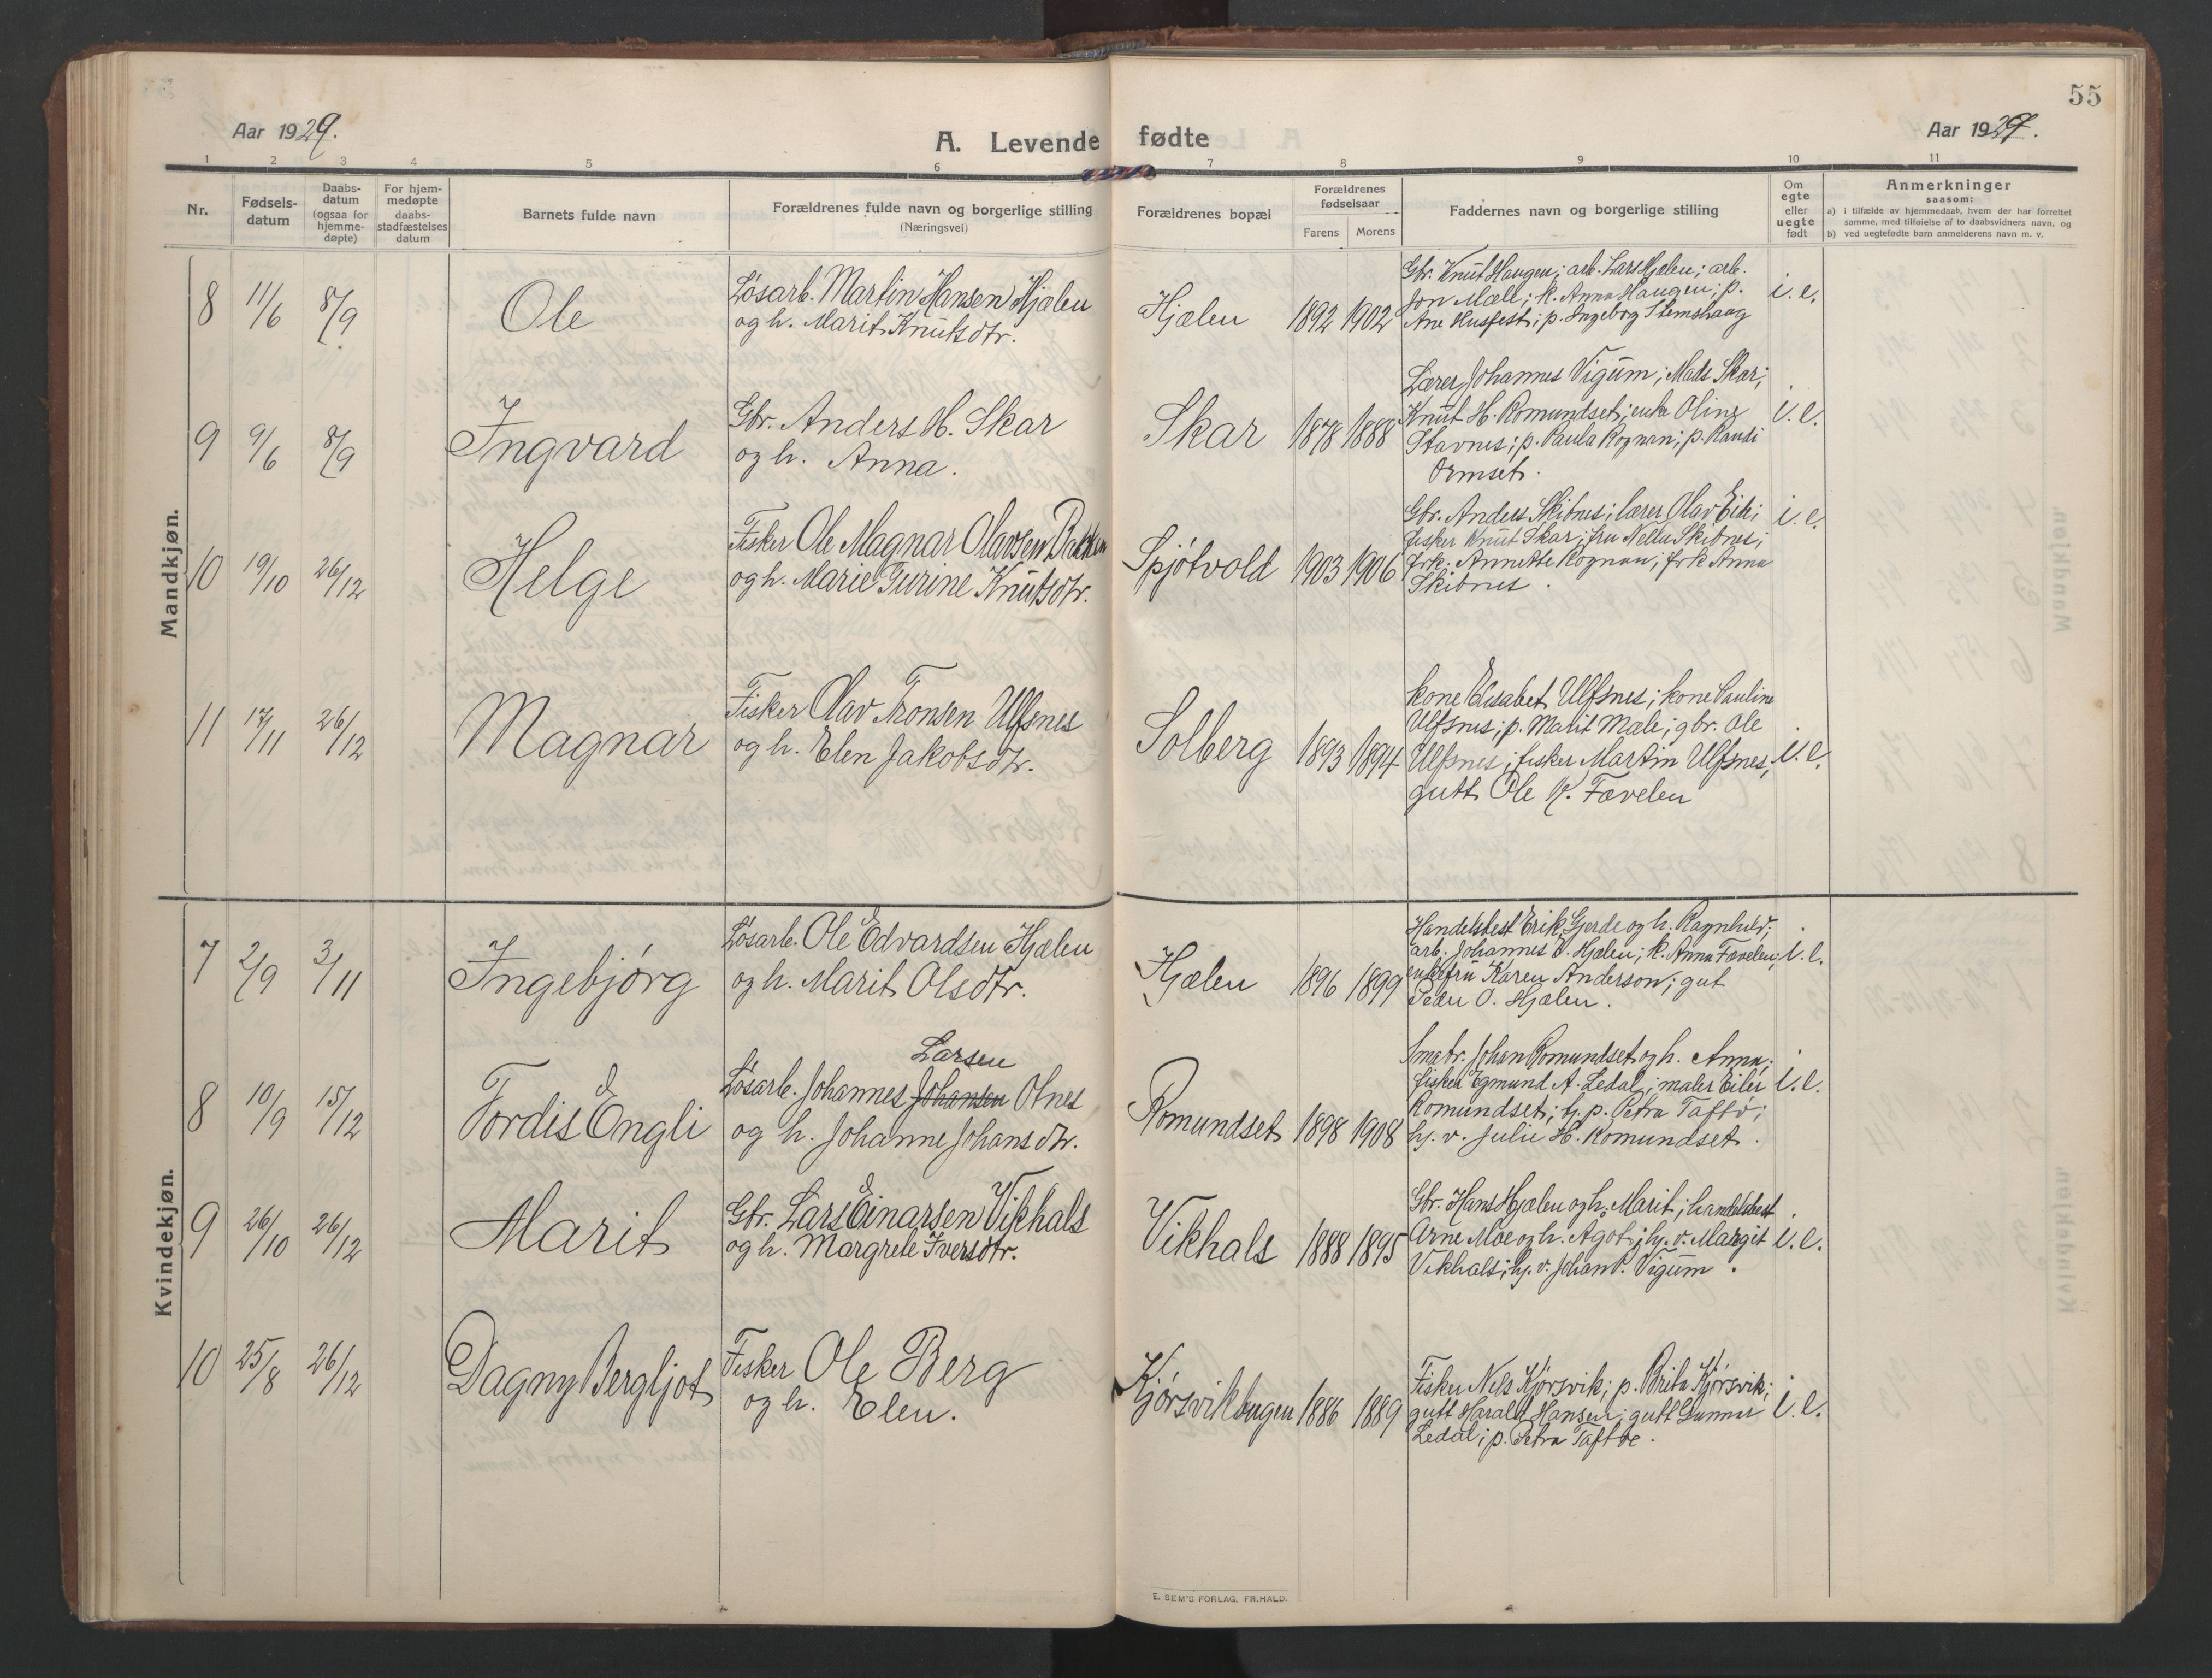 55
Aar 1929.
A. Levende fødte
Aar 1929.
1 2 3 4 5 6 7 8 9 10 11
Nr.
Fødsels-
datum
Daabs-
datum
(ogsaa for
hjemme-
døpte)
For hjem-
medøpte
daabs-
stadfæstelses
datum
Barnets fulde navn
Forældrenes fulde navn og borgerlige stilling
(Næringsvei)
Forældrenes bopæl
Forældrenes
fødselsaar
Farens Morens
Faddernes navn og borgerlige stilling
Om
egte
eller
uegte
født
Anmerkninger
saasom:
a) i tilfælde av hjemmedaab, hvem der har forrettet
samme, med tilføielse af to daabsvidners navn, og
b) ved uegtefødte barn anmelderens navn m. v.
Mandkjøn.
8 11/6 8/9 Ole
Løsarb. Martin Hansen Hjælen
og h. Marit Knutsdtr.
Hjælen 1892 1902
Gbr. Knut Haugen; arb. Lars Hjælen; arb.
Jon Mæle; k. Anna Haugen; p.
Ane Husfest; p. Ingeborg Stemshaug
i. e.
9 9/6 8/9 Ingvard
Gbr. Anders H. Skar
og h. Anna.
Skar 1878 1888
Lærer Johannes Vigum; Mads Skar;
Knut H. Romundset; enke Oline
Stavnes; p. Paula Rognan; p. Randi
Ormset.
i. e.
10 19/10 26/12 Helge
Fisker Ole Magnar Olavsen Bakken
og h. Marie Turine Knutsdtr.
Spjøtvold 1903 1906
Gbr. Anders Skibnes; lærer Olav Eide;
fisker Knut Skar; fru Nella Skibnes;
frk. Annette Rognan; frk Anna
Skibnes.
i. e.
11 17/11 26/12 Magnar
Fisker Olav Tronsen Ulfsnes
og h. Elen Jakobsdtr.
Solberg 1893 1894
kone Elisabet Ulfsnes; kone Pauline
Ulfsnes; p. Marit Mæle; gbr. Ole
Ulfsnes; fisker Martin Ulfsnes;
gutt Ole K. Fævelen
i. e.
Kvindekjøn.
7 2/9 3/11 Ingebjørg
Løsarb. Ole Edvardsen Hjælen
og h. Marit Olsdtr.
Hjælen 1896 1899
Handelsbest Erik Gjerde og h. Ragnhild;
arb. Johannes O. Hjælen; k. Anna Fævelen;
enkefru Karen Anderson; gut
Peder O. Hjælen.
i. e.
8 10/9 15/12 Tordis Engli
Larsen
Løsarb. Johannes Johansen Otnes
og h. Johanne Johansdtr.
Romundset 1898 1908
Smabr. Johan Romundset og h. Anna;
fisker Egmund A. Ledal; maler Eiler
Romundset; hj. p. Petra Taftø;
hj. v. Julie H. Romundset.
i. e.
9 26/10 26/12 Marit
Gbr. Lars Einarsen Vikhals
og h. Margrete Iversdtr.
Vikhals 1888 1895
Gbr. Hans Hjælen og h. Marit; handelsbest
Arne Moe og h. Agot; hj. v. Margit
Vikhals; hj. v. Johan P. Vigum.
i. e.
10 25/8 26/12 Dagny Bergljot
Fisker Ole Berg
og h. Elen.
Kjørsvikbugen 1886 1889
Fisker Nels Kjørsvik; p. Brita Kjørsvik;
gutt Harald Hansen; gutt Gunnar
Ledal; p. Petra Taftøe.
i. e.
E. SEM'S FORLAG, FR.HALD.